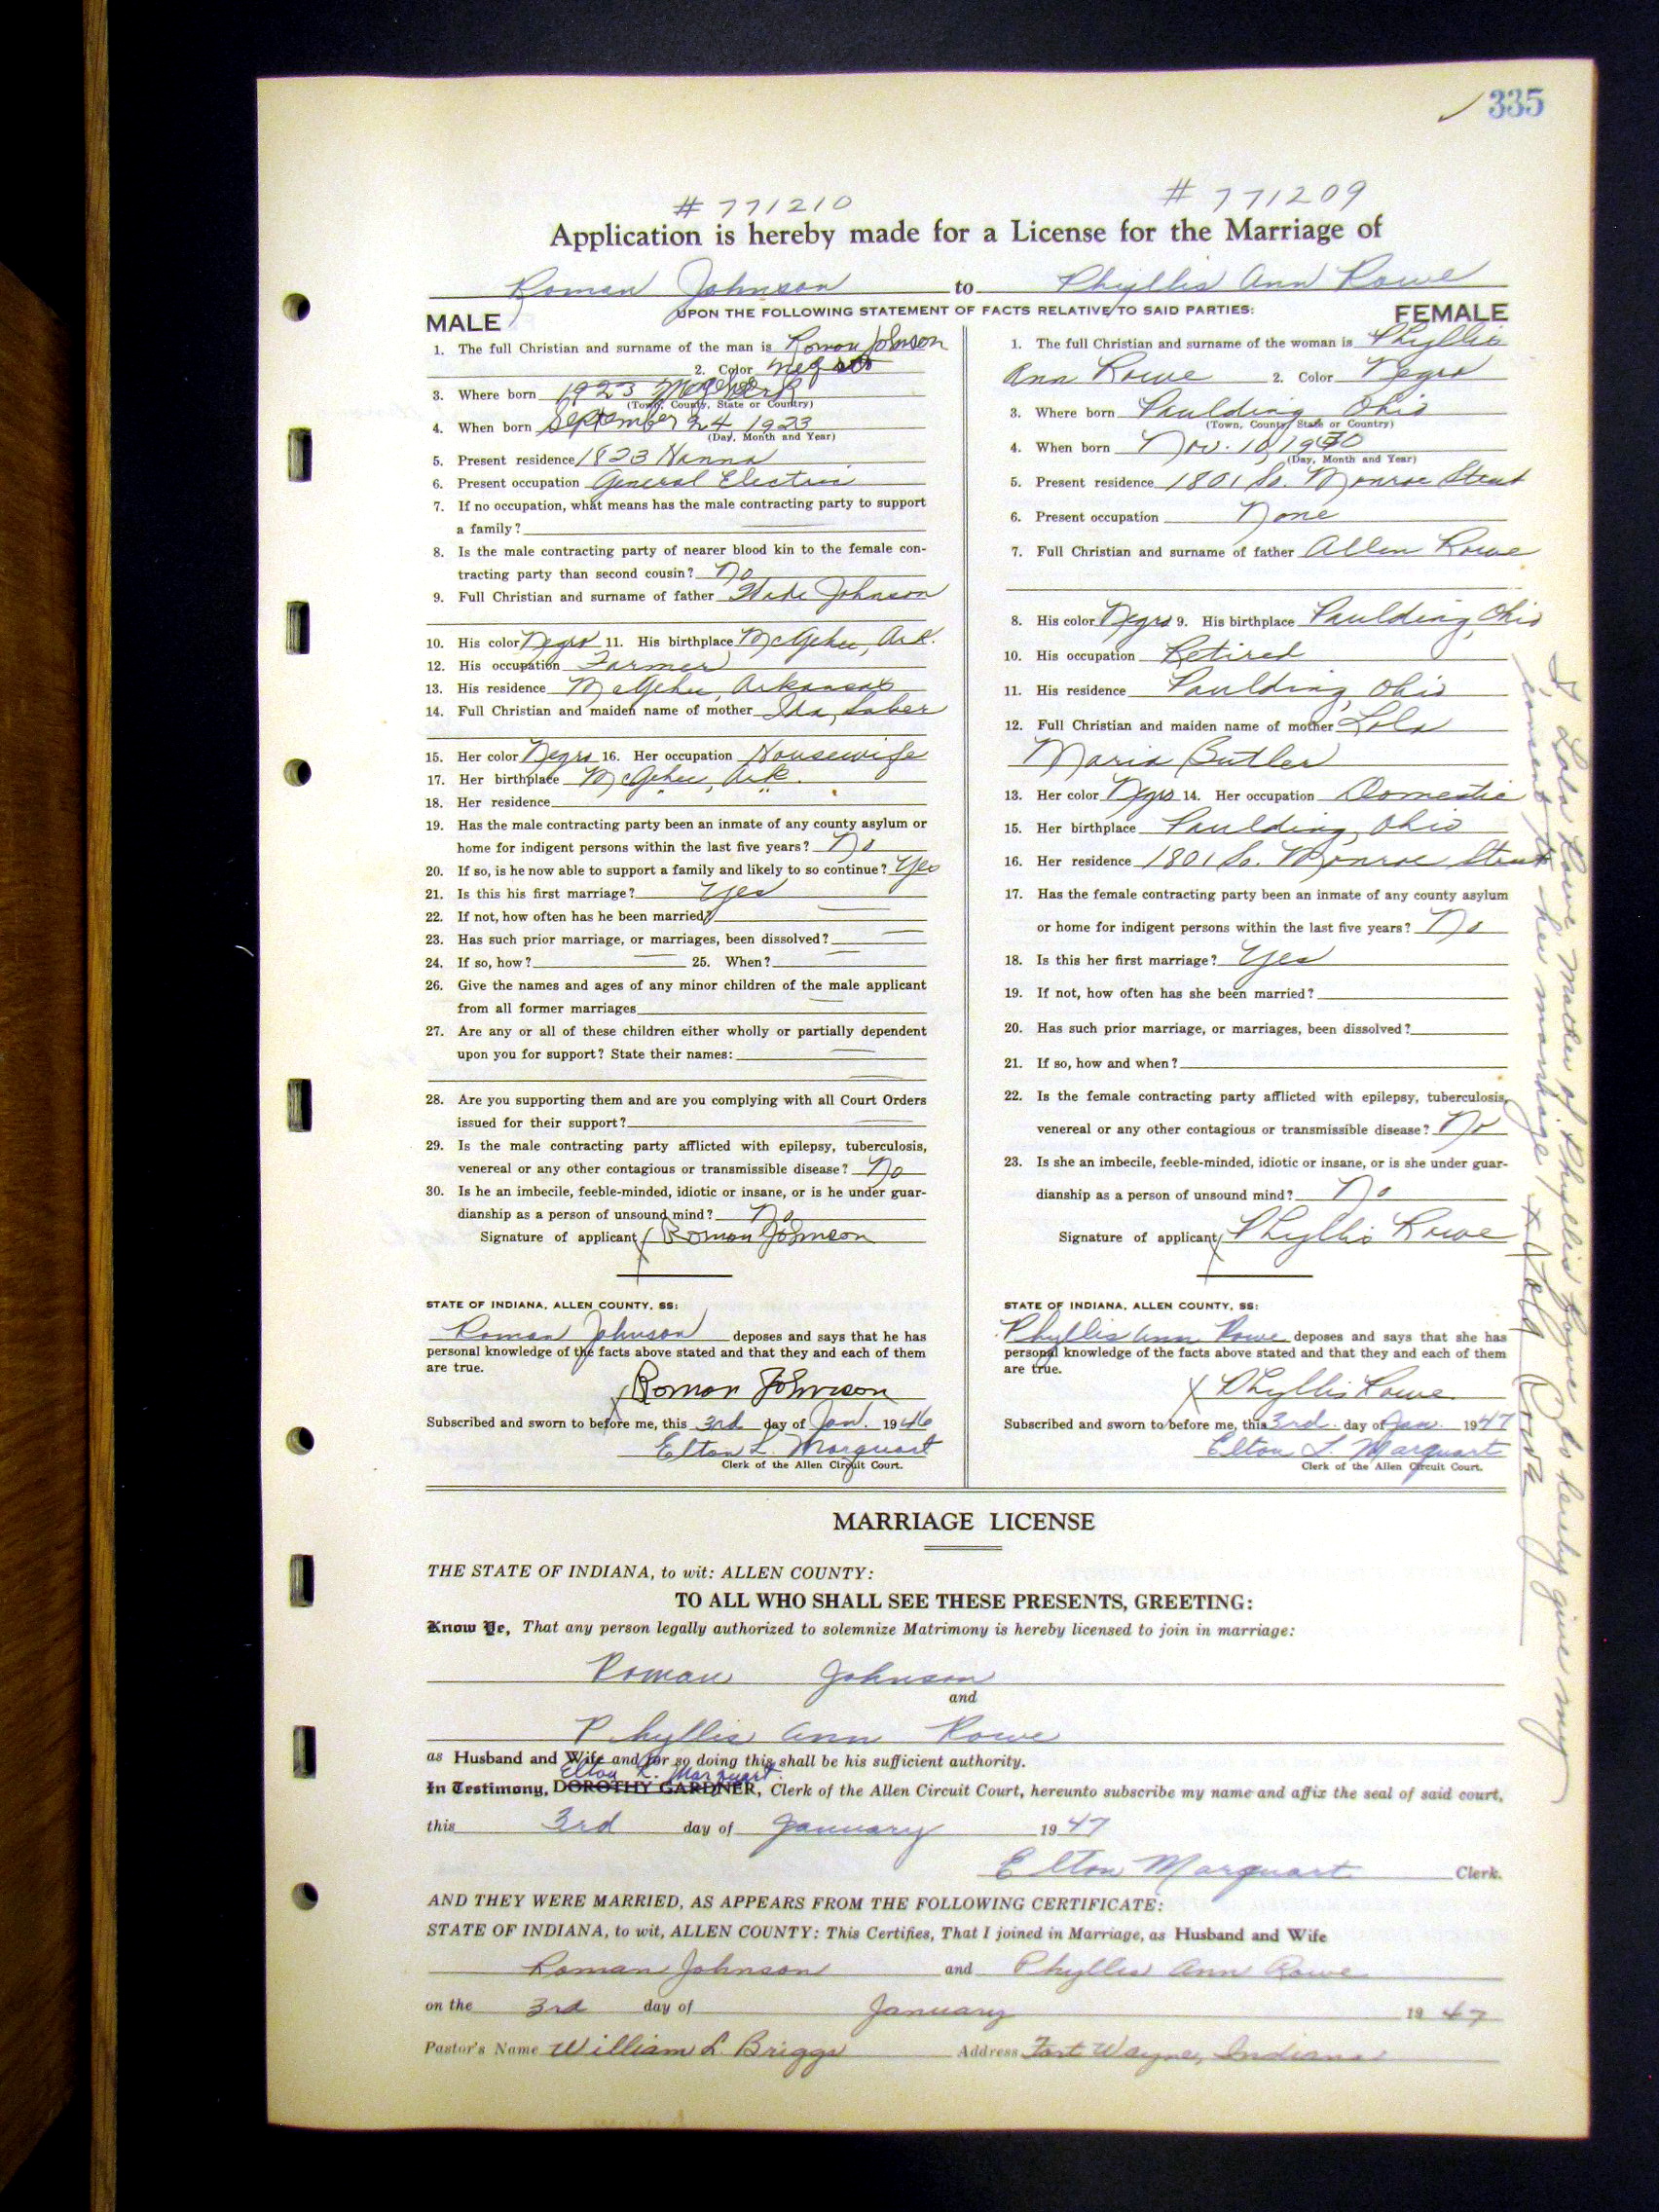 335
# 771210 # 771209
Application is hereby made for a License for the Marriage of
Roman Johnson to Phyllis Ann Rowe
UPON THE FOLLOWING STATEMENT OF FACTS RELATIVE TO SAID PARTIES:
MALE
1. The full Christian and surname of the man is Roman Johnson
2. Color Negro
3. Where born 1923
(Town, County, State or Country)
4. When born September 24 1923
(Day, Month and Year)
5. Present residence 1823 Hanna
6. Present occupation General Electric
7. If no occupation, what means has the male contracting party to support
a family?
8. Is the male contracting party of nearer blood kin to the female con-
tracting party than second cousin? No
9. Full Christian and surname of father Johnson
10. His color Negro 11. His birthplace McGehee, Ark.
12. His occupation Farmer
13. His residence McGehee, Arkansas
14. Full Christian and maiden name of mother Ida
15. Her color Negro 16. Her occupation Housewife
17. Her birthplace McGehee, Ark.
18. Her residence
19. Has the male contracting party been an inmate of any county asylum or
home for indigent persons within the last five years? No
20. If so, is he now able to support a family and likely to so continue? Yes
21. Is this his first marriage? Yes
22. If not, how often has he been married?
23. Has such prior marriage, or marriages, been dissolved?
24. If so, how? 25. When?
26. Give the names and ages of any minor children of the male applicant
from all former marriages
27. Are any or all of these children either wholly or partially dependent
upon you for support? State their names:
28. Are you supporting them and are you complying with all Court Orders
issued for their support?
29. Is the male contracting party afflicted with epilepsy, tuberculosis,
venereal or any other contagious or transmissible disease? No
30. Is he an imbecile, feeble-minded, idiotic or insane, or is he under guar-
dianship as a person of unsound mind? No
Signature of applicant X Roman Johnson
STATE OF INDIANA, ALLEN COUNTY, SS:
Roman Johnson deposes and says that he has
personal knowledge of the facts above stated and that they and each of them
are true.
X Roman Johnson
Subscribed and sworn to before me, this 3rd day of Jan. 1946
Elton L. Marquart
Clerk of the Allen Circuit Court.
FEMALE
1. The full Christian and surname of the woman is Phyllis
Ann Rowe 2. Color Negro
3. Where born Paulding, Ohio
(Town, County, State or Country)
4. When born Nov. 10, 1930
(Day, Month and Year)
5. Present residence 1801 So. Monroe Street
6. Present occupation None
7. Full Christian and surname of father Allen Rowe
8. His color Negro 9. His birthplace Paulding, Ohio
10. His occupation Retired
11. His residence Paulding, Ohio
12. Full Christian and maiden name of mother Lola
Maria Butler
13. Her color Negro 14. Her occupation Domestic
15. Her birthplace Paulding, Ohio
16. Her residence 1801 So. Monroe Street
17. Has the female contracting party been an inmate of any county asylum
or home for indigent persons within the last five years? No
18. Is this her first marriage? Yes
19. If not, how often has she been married?
20. Has such prior marriage, or marriages, been dissolved?
21. If so, how and when?
22. Is the female contracting party afflicted with epilepsy, tuberculosis,
venereal or any other contagious or transmissible disease? No
23. Is she an imbecile, feeble-minded, idiotic or insane, or is she under guar-
dianship as a person of unsound mind? No
Signature of applicant X Phyllis Rowe
STATE OF INDIANA, ALLEN COUNTY, SS:
Phyllis Ann Rowe deposes and says that she has
personal knowledge of the facts above stated and that they and each of them
are true.
X Phyllis Rowe
Subscribed and sworn to before me, this 3rd. day of Jan. 1947
Elton L. Marquart
Clerk of the Allen Circuit Court.
I, Lola Rowe mother of Phyllis Rowe do hereby give my
consent to her marriage, X Lola Rowe
MARRIAGE LICENSE
THE STATE OF INDIANA, to wit: ALLEN COUNTY:
TO ALL WHO SHALL SEE THESE PRESENTS, GREETING:
Know Ye, That any person legally authorized to solemnize Matrimony is hereby licensed to join in marriage:
Roman Johnson
and
Phyllis Ann Rowe
as Husband and Wife and for so doing this shall be his sufficient authority.
Elton L. Marquart
In Testimony, DOROTHY GARDNER, Clerk of the Allen Circuit Court, hereunto subscribe my name and affix the seal of said court,
this 3rd day of January 1947
Elton Marquart Clerk.
AND THEY WERE MARRIED, AS APPEARS FROM THE FOLLOWING CERTIFICATE:
STATE OF INDIANA, to wit, ALLEN COUNTY: This Certifies, That I joined in Marriage, as Husband and Wife
Roman Johnson and Phyllis Ann Rowe
on the 3rd day of January 1947
Pastor's Name William L. Briggs Address Fort Wayne, Indiana